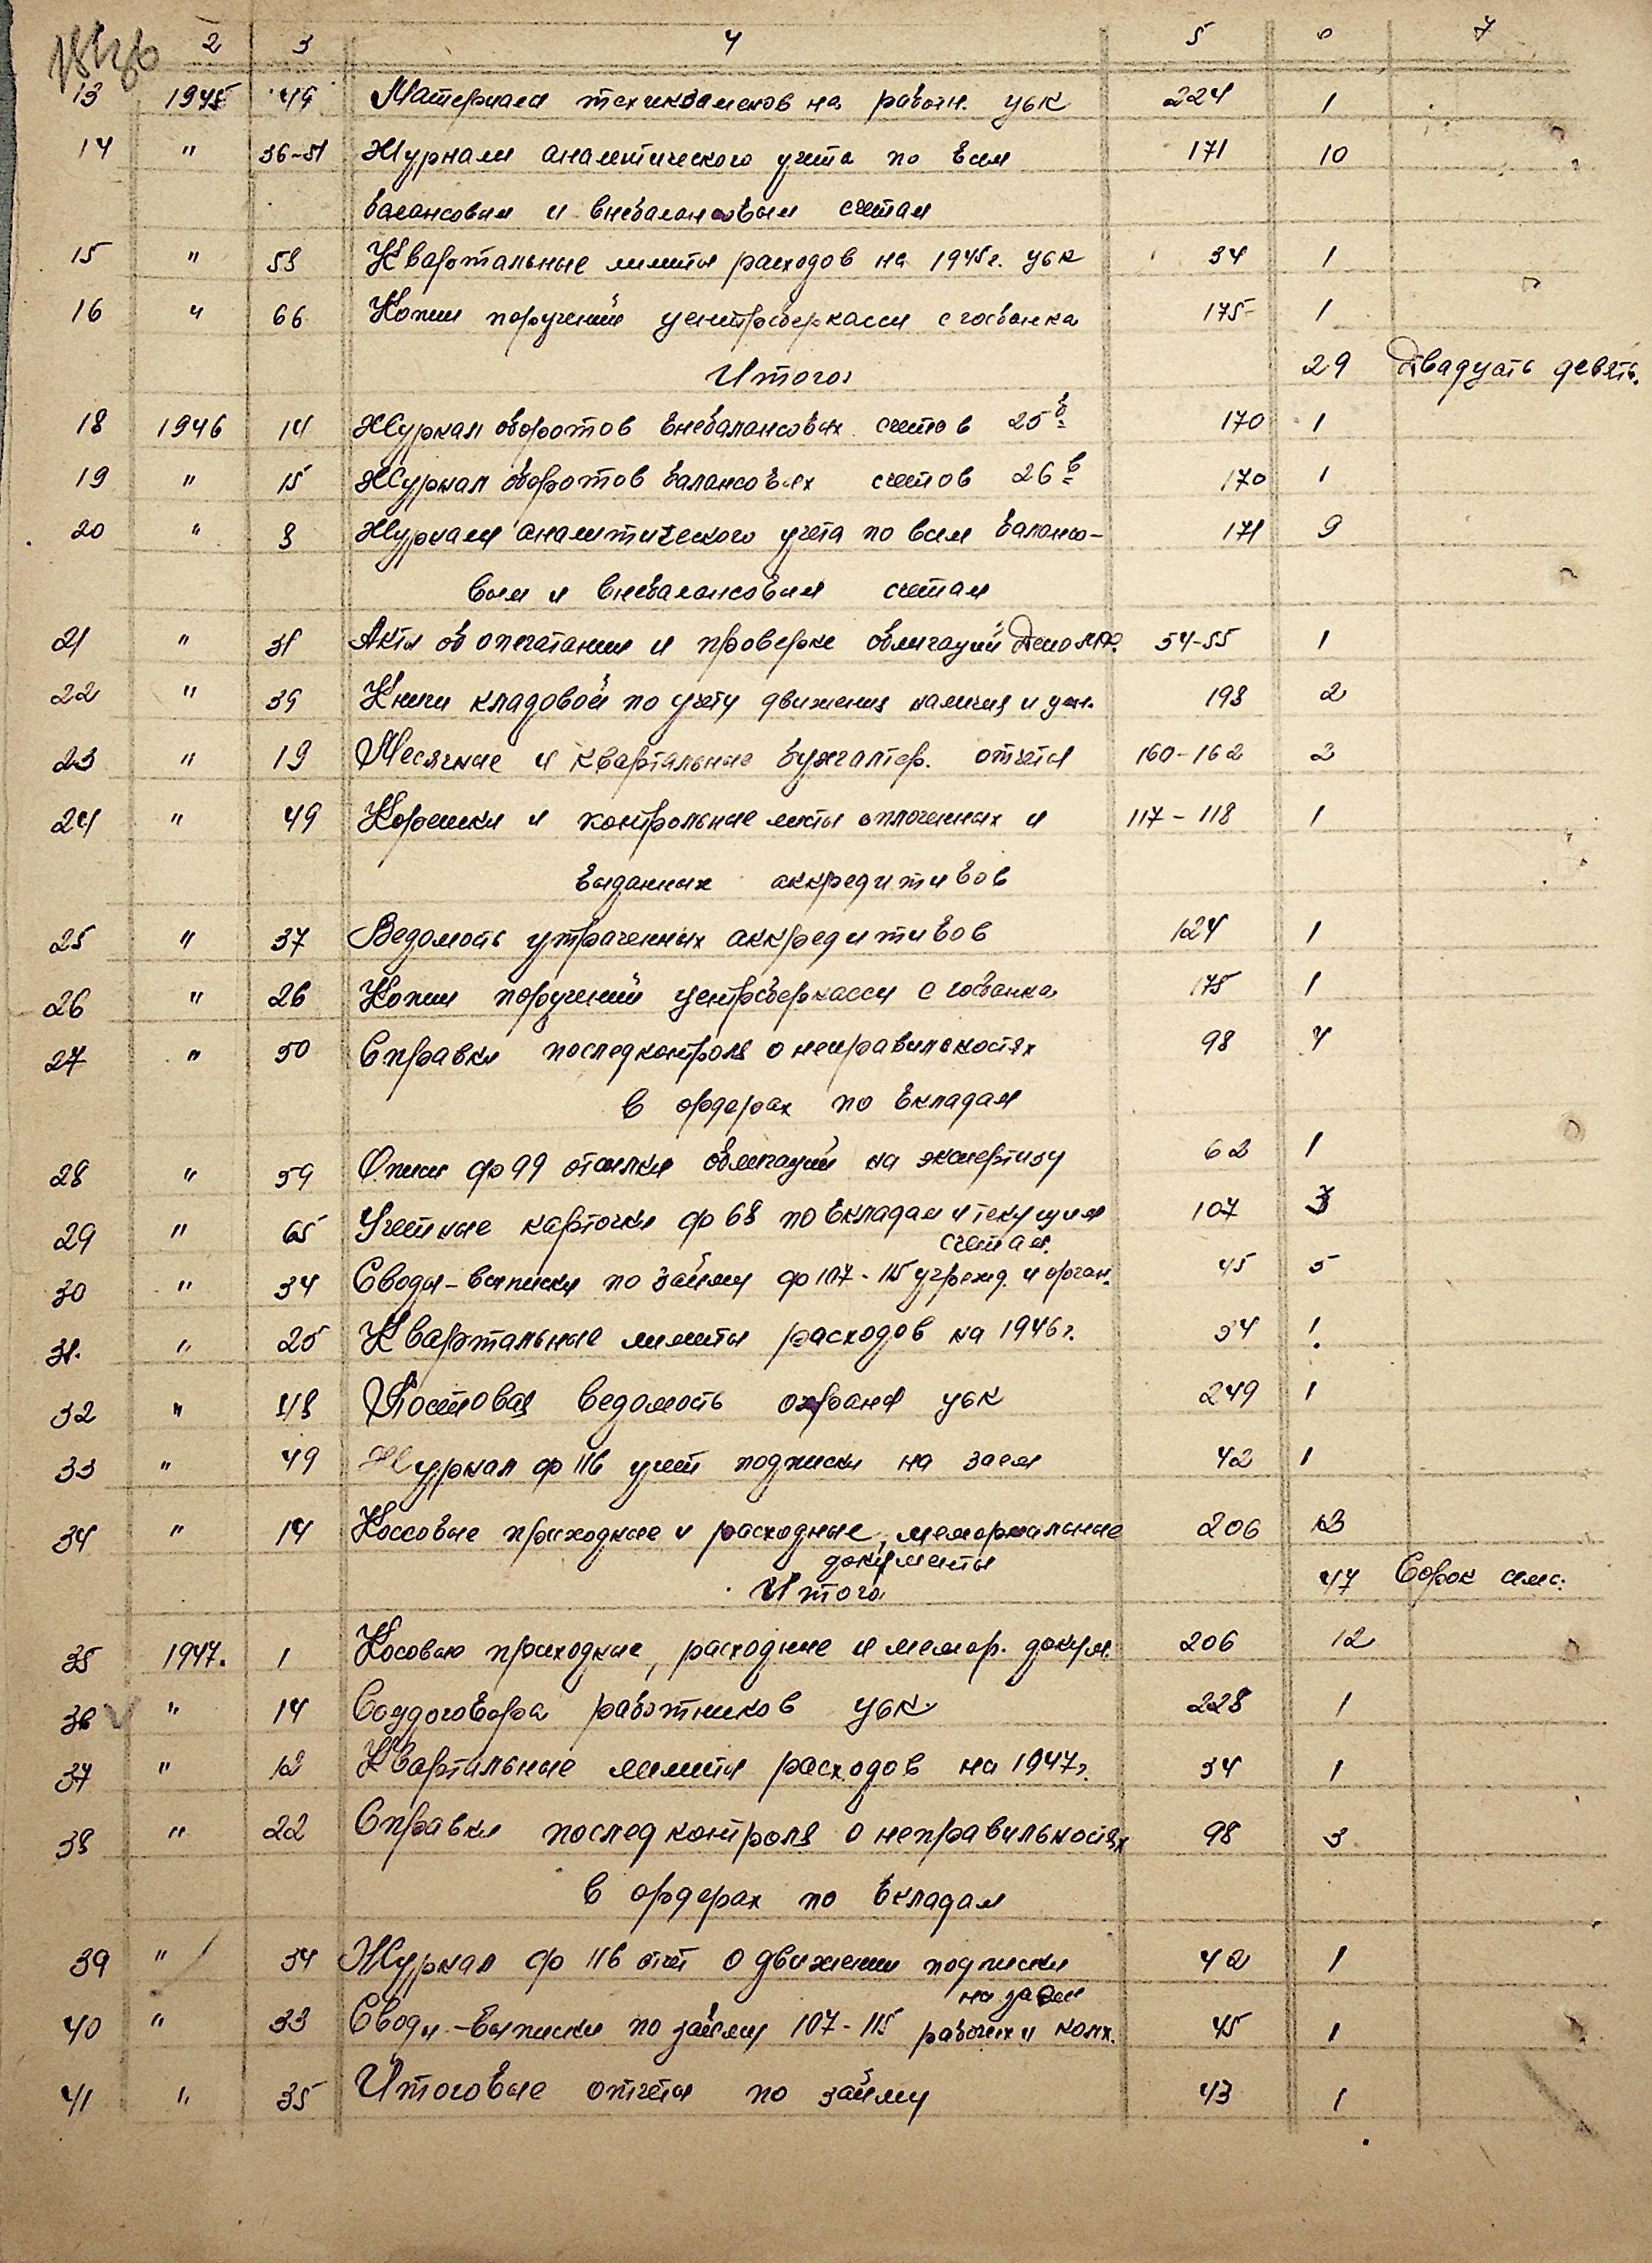 2 3 4 5 6 7
13 1945 44 Материалы техникамсков на работн. цск 224 1
14 " 36-51 Журналы аналитического учета по всем 171 10
балансовым и внебалансовым счетам
15 " 53 Квартальные лимиты расходов на 1945 г. цск 34 1
16 " 66 Копии поручений центрсберкассы с госбанка 175 1
Итого: 29 Двадцать девять.
18 1946 14 Журнал оборотов внебалансовых счетов 25в 170 1
19 " 15 Журнал оборотов балансовых счетов 26в 170 1
20 " 8 Журналы аналитического учета по всем балансо-171 9
вым и внебалансовым счетам
21 " 31 Акты об опечатании и проверке облигаций 54-55 1
22 " 39 Книги кладовой по учету движения наличия и цен. 198 2
23 " 19 Месячные и квартальные бухгалтер. отчеты 160-162 2
24 " 49 Корешки и контрольные листы оплоченных и 117-118 1
выданных аккредитивов
25 " 37 Ведомость утраченных аккредитивов 124 1
26 " 26 Копии поручений центрсберкассы с госбанка 175 1
27 " 50 Справки последконтроля о неправильностях 98 4
в ордерах по вкладам
28 " 59 Описи ф 99 отсылки облигаций на экспертизу 62 1
29 " 65 Учетные карточки ф 68 по вкладам и текущим 107 3
счетам.
30 " 34 Своды-выписки по займу ф 107-115 учрежд. и орган. 45 5
31. " 25 Квартальные лимиты расходов на 1946 г. 54 1
32 " 48 Постовая ведомость охраны цск 249 1
33 " 49 Журнал ф 116 учет подписки на заем 42 1
34 " 14 Кассовые приходные и расходные, мемориальные 206 13
документы
Итого 47 Сорок семь.
35 1947. 1 Касовые приходные, расходные и мемор. докум. 206 12
36 " 14 Соцдоговора работников цск 228 1
37 " 12 Квартальные лимиты расходов на 1947 г. 54 1
38 " 22 Справки последконтроля о неправильностях 98 3
в ордерах по вкладам
39 " 34 Журнал ф 116 отчёт о движении подписки 42 1
на заем
40 " 33 Своды-выписки по займу 107-115 рабочих и колх. 45 1
41 " 35 Итоговые отчеты по займу 43 1